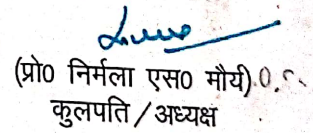 (प्रो0 निर्मला एस0 मौर्य)
कुलपति / अध्यक्ष